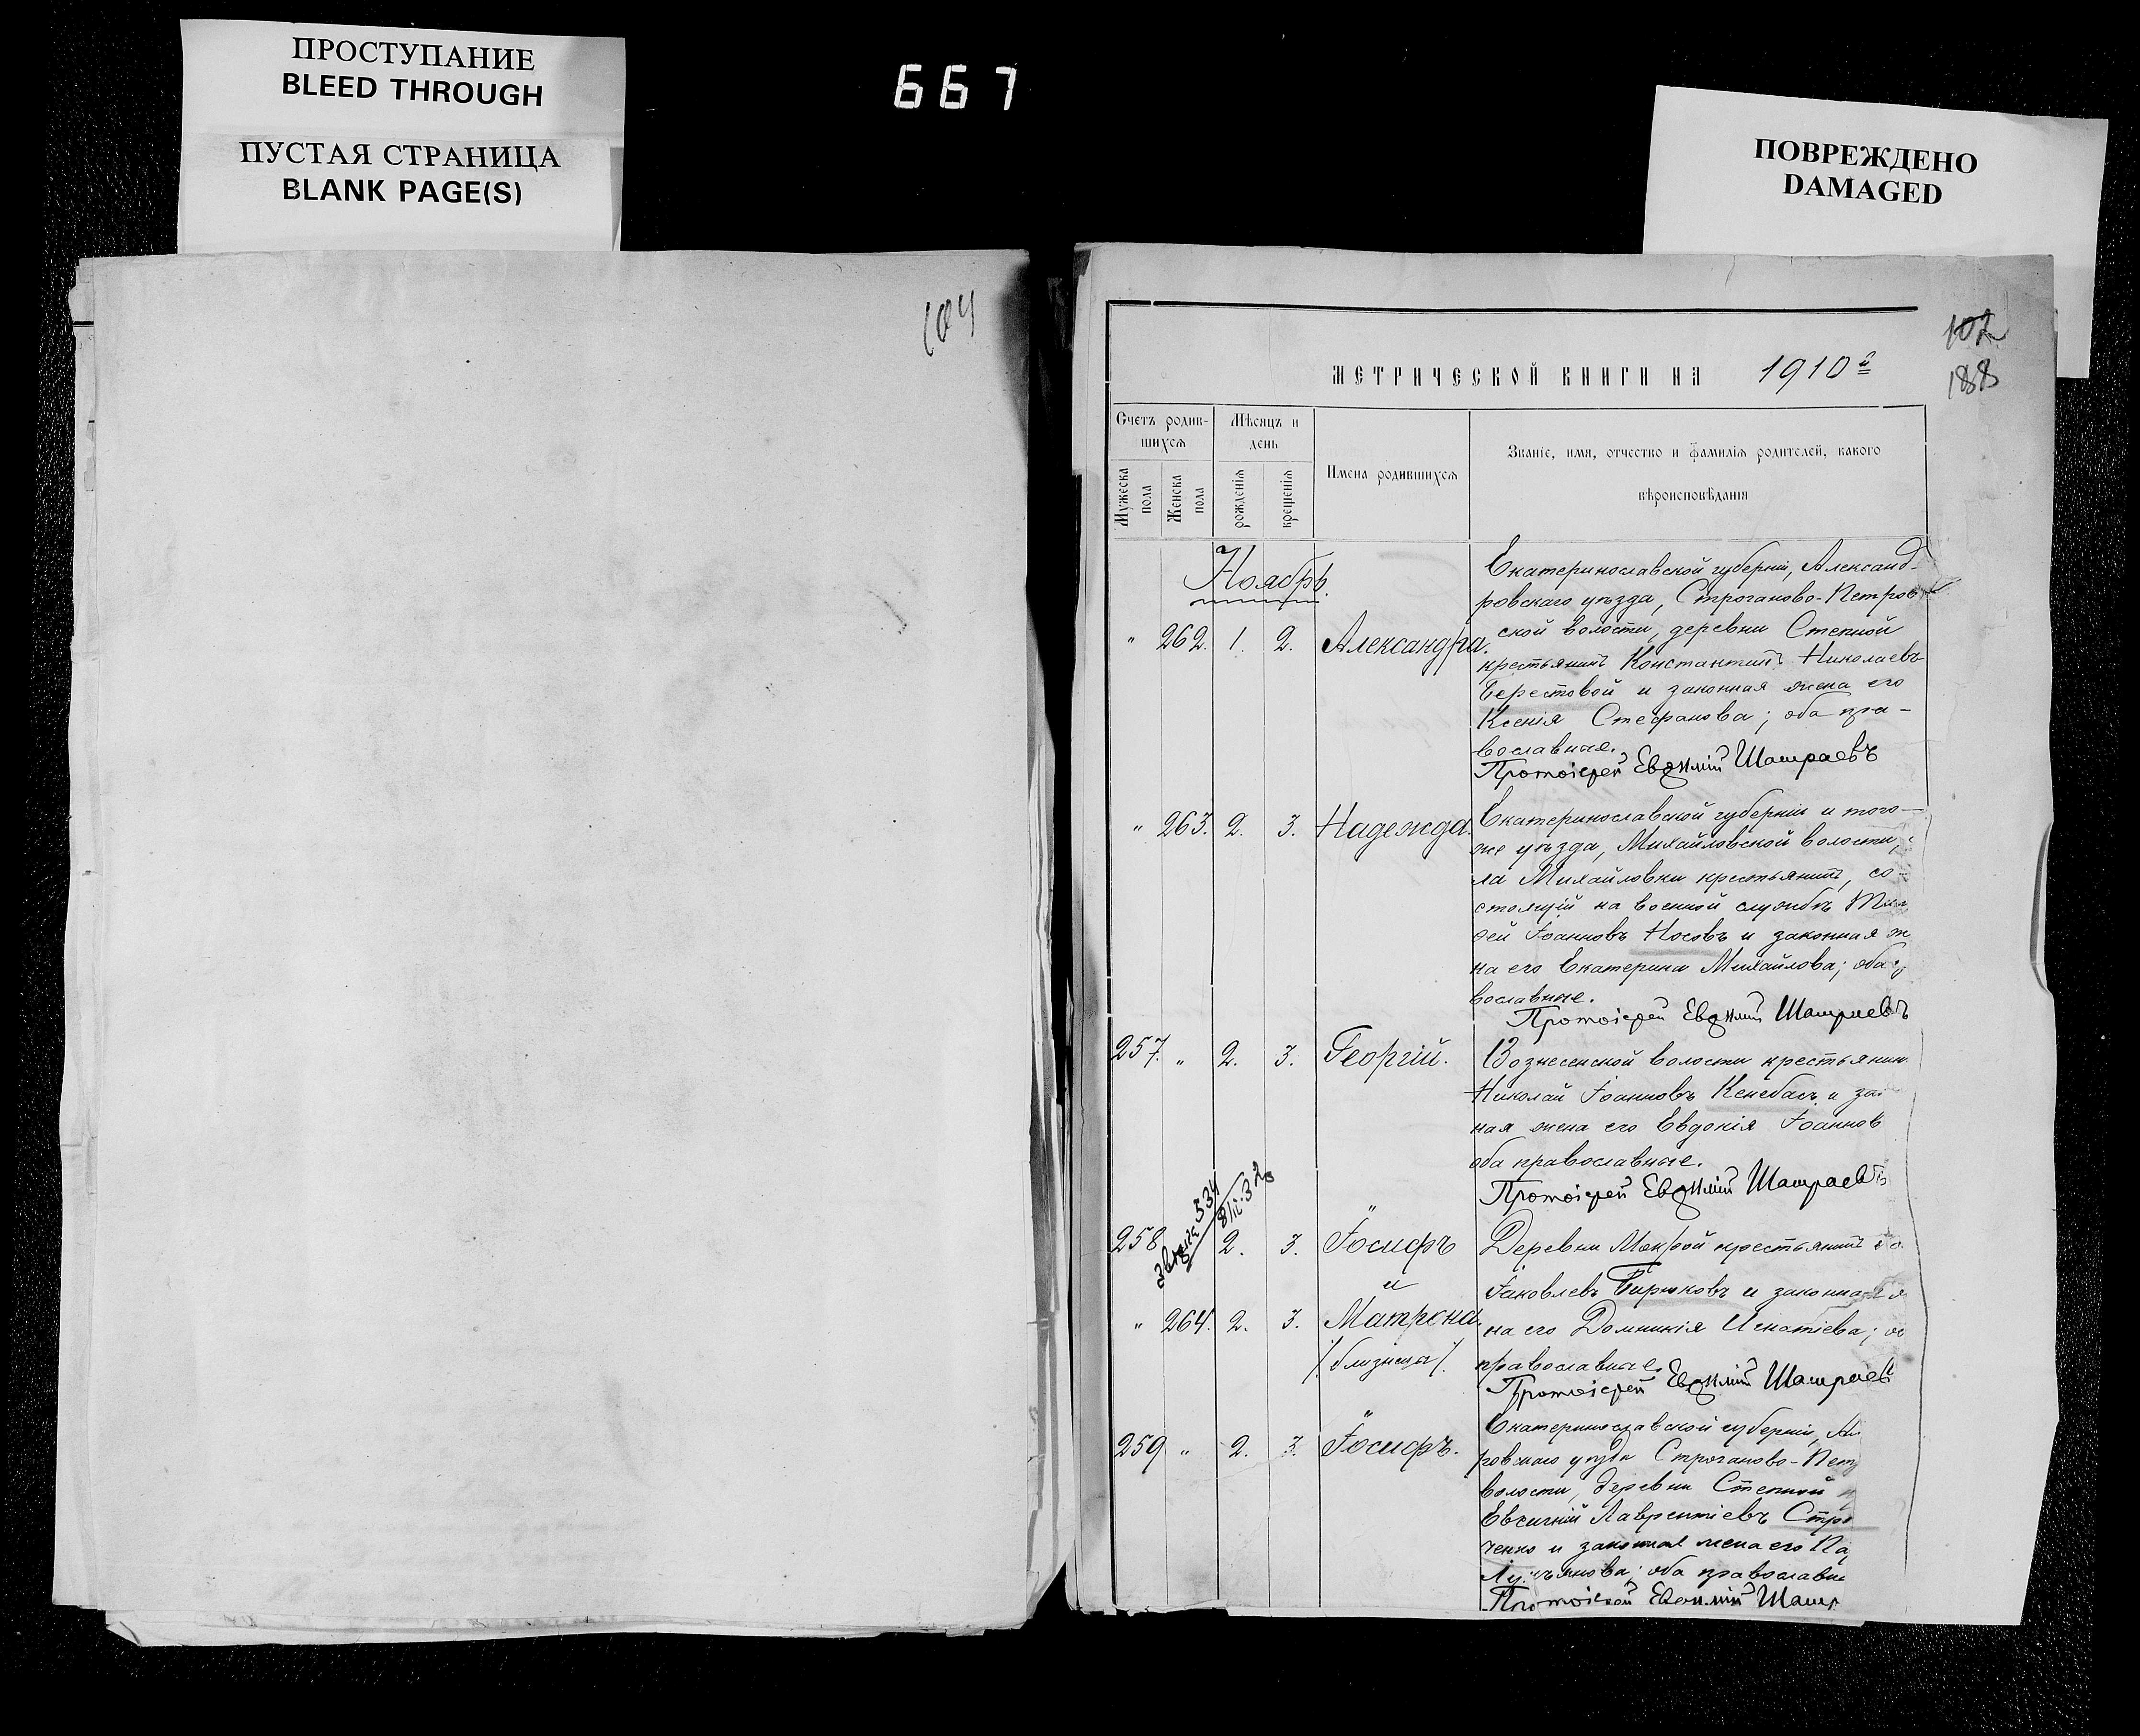 ПРОСТУПАНИЕ
BLEED THROUGH
ПУСТАЯ СТРАНИЦА
BLANK PAGE(S)
667
ПОВРЕЖДЕНО
DAMAGED
104
102
188
МЕТРИЧЕСКОЙ КНИГИ НА 1910 г
Счетъ родив-
шихся
Мужеска пола
Женска пола
Мѣсяцъ и
день
рожденія
крещенія
Имена родившихся
Званіе, имя, отчество и фамилія родителей, какого
вѣроисповѣданія
Ноябрь.
" 262. 1. 2. Александра.
Екатеринославской губерніи, Александ-
ровскаго уѣзда, Строганово-Петров
ской волости, деревни Степной
крестьянинъ Константинъ Николаевъ
Берестовой и законная жена его
Ксенія Стефанова; оба пра-
вославные.
Протоіерей Евѳимій Шамраевъ
" 263. 2. 3. Надежда.
Екатеринославской губерніи и того-
же уѣзда, Михайловской волости,
ла Михайловки крестьянинъ, со-
стоящій на военной службѣ
ѳей Іоанновъ Носовъ и законная ж
на его Екатерина Михайлова; оба
вославные.
Протоіерей Евѳимій Шамраевъ
257. " 2. 3. Георгій.
Вознесенской волости крестьянин
Николай Іоанновъ Кенебасъ и за
ная жена его Евдокія Іоаннов
оба православные.
Протоіерей Евѳимій Шамраевъ
534
8/II-32
258 2. 3. Іосифъ
и
" 264. 2. 3. Матрона.
/близнецы/.
Деревни Мокрой крестьянинъ
Іаковлевъ Бирюковъ и законная
на его Домникія Игнатіева;
православные.
Протоіерей Евѳимій Шамраевъ
259 " 2. 3. Іосифъ.
Екатеринославской губерніи, Ал
ровскаго уѣзда Строганово-Петр
волости, деревни Степной
Евсигній Лаврентіевъ Стро
ченко и законная жена его Па
Лукьянова; оба православн
Протоіерей Евѳимій Шамр